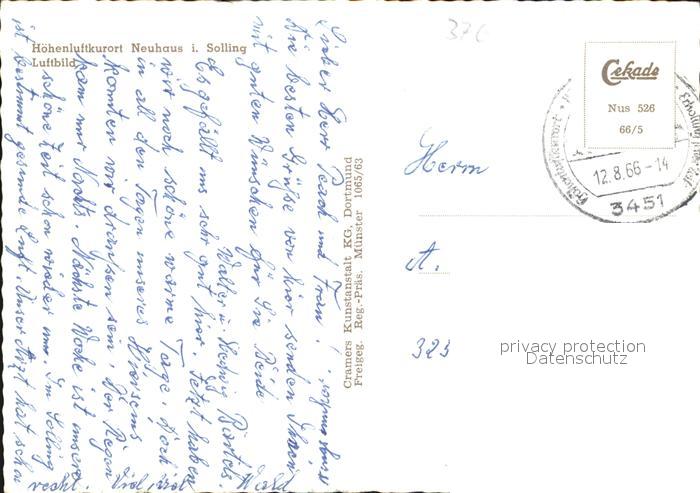 Höhenluftkurort Neuhaus i. Solling
Luftbild
37C
Cekade
Nus 526
66/5
12.8.66-14
3451
Cramers Kunstanstalt KG, Dortmund
Freigeg. Reg.-Präs. Münster 1065/63
Herrn
A.
323
privacy protection
Datenschutz
Lieber Herr und Frau!
Die besten Grüße von hier senden Ihnen
mit guten Wünschen für Sie Beide
Walter u. Hedwig Bartels.
Es gefällt uns sehr gut hier. Jetzt haben
wir noch schöne warme Tage, doch
in all den Tagen unseres Hierseins
konnten wir draußen sein, der Regen
kam nur Nachts. Nächste Woche ist unsere
schöne Zeit schon wieder um. Im Solling
ist bestimmt gesunde Luft. Unser Arzt hat schon
recht. Viel, viel Wald